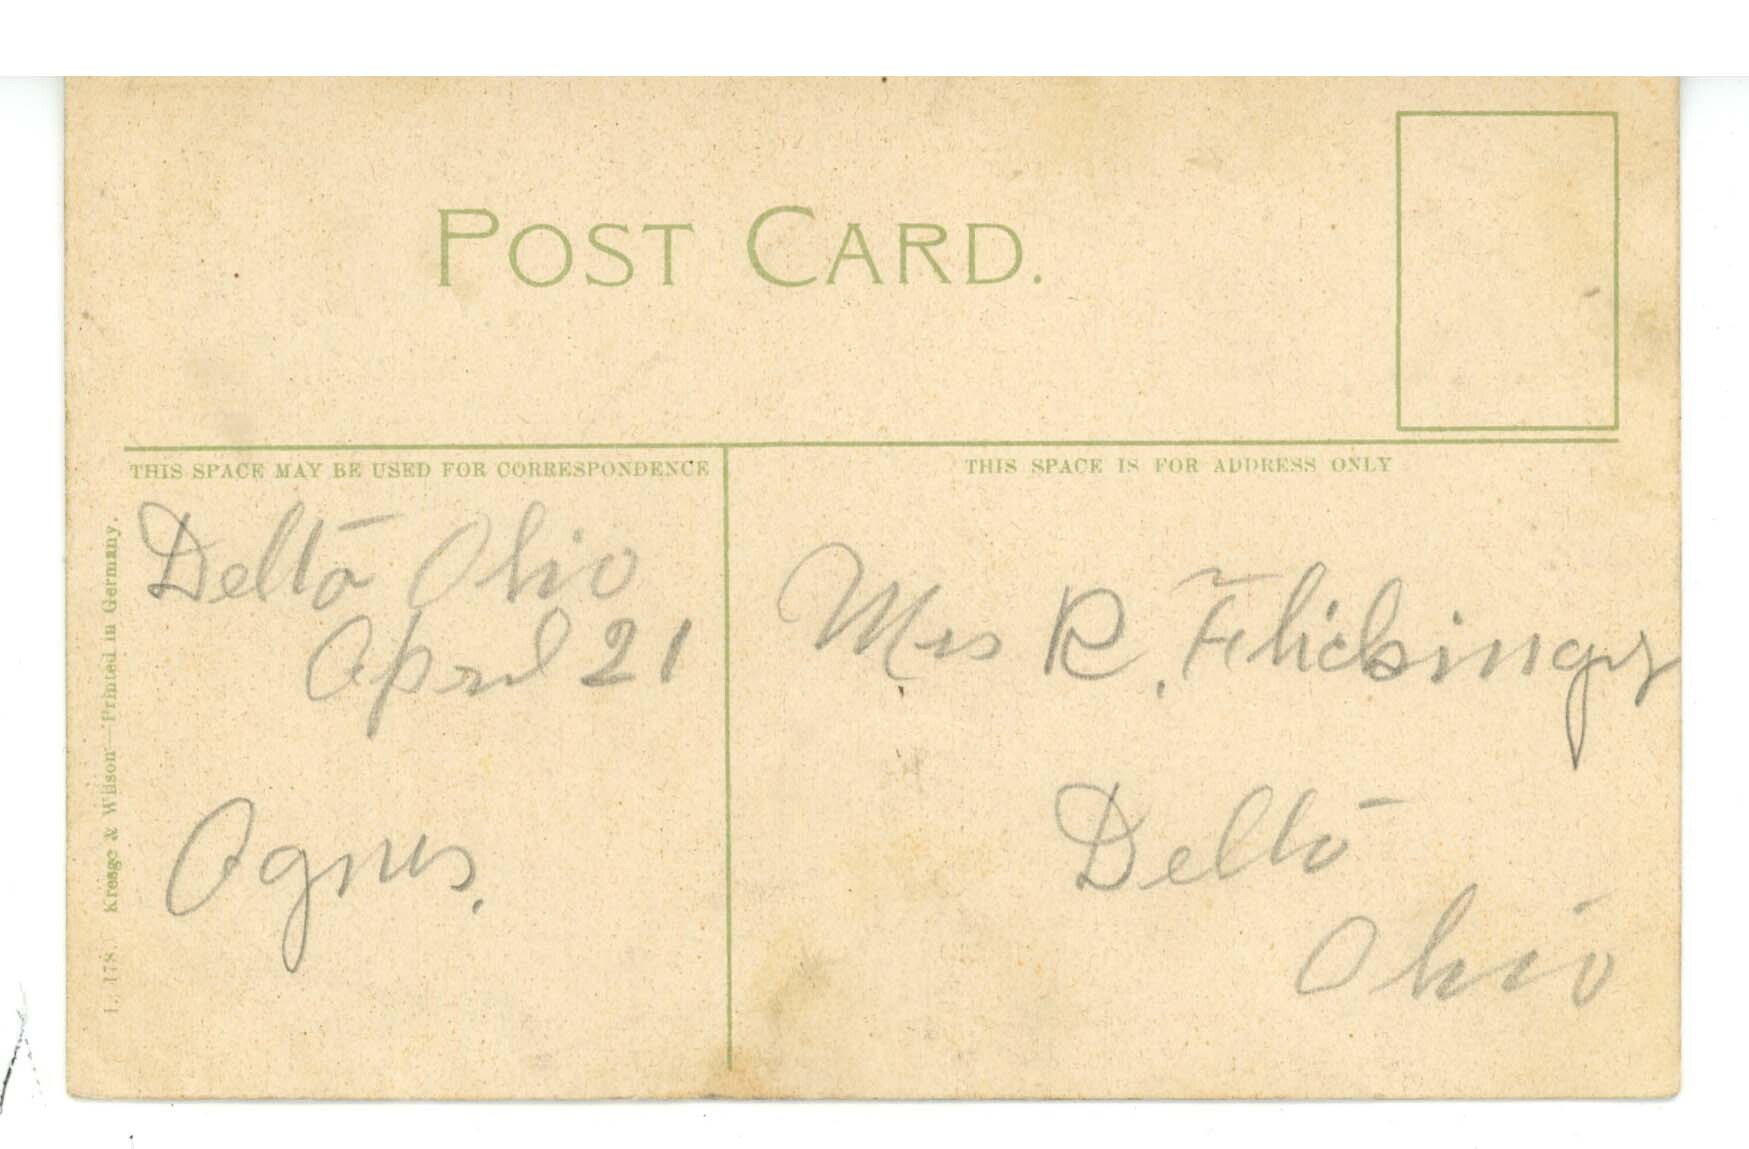 POST CARD.
THIS SPACE MAY BE USED FOR CORRESPONDENCE
THIS SPACE IS FOR ADDRESS ONLY
Delta Ohio
April 21
Agnes.
Mrs R. Flickinger
Delta
Ohio
L. 178. Kresge & Wilson—Printed in Germany.